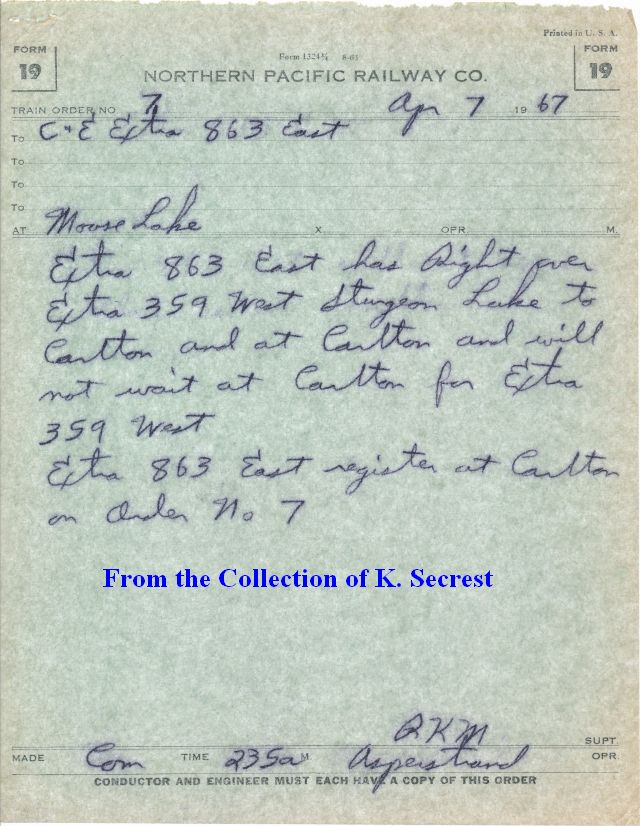 Printed in U. S. A.
FORM
19
Form 1324¾ 8-61
FORM
19
NORTHERN PACIFIC RAILWAY CO.
TRAIN ORDER NO 7 Apr 7 1967
To C+E Extra 863 East
To
To
To
AT Moose Lake X OPR. M.
Extra 863 East has Right over
Extra 359 West Sturgeon Lake to
Carlton and at Carlton and will
not wait at Carlton for Extra
359 West
Extra 863 East register at Carlton
on Order No 7
From the Collection of K. Secrest
RKM SUPT.
MADE Com TIME 235a M Asperstrand OPR.
CONDUCTOR AND ENGINEER MUST EACH HAVE A COPY OF THIS ORDER